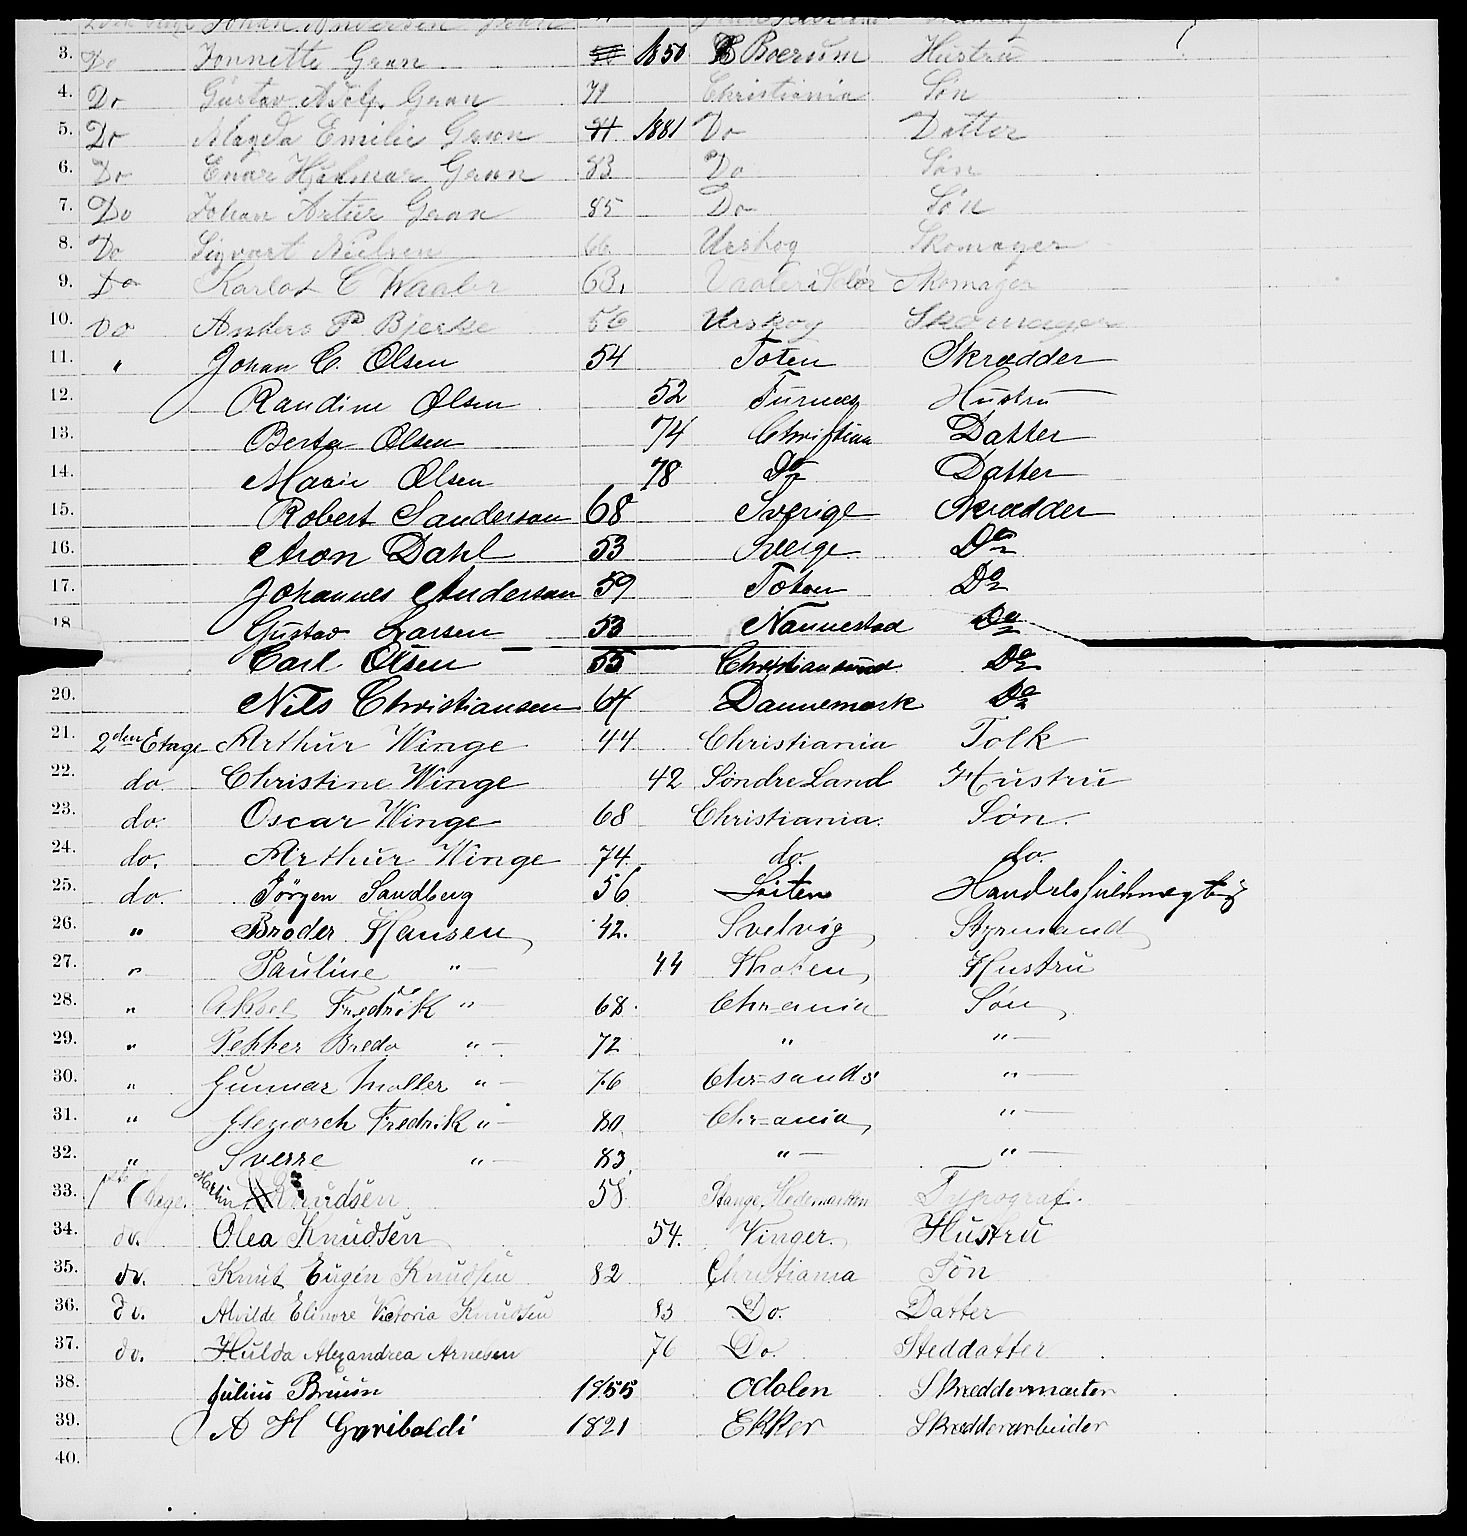 Johan Andersen Gran
3. Do Jonnette Gran 1850 Boerum Hustru
4. Do Gustav Adolf Gran 71 Christiania Søn
5. Do Magda Emilie Gran 1881 Do Datter
6. Do Enar Hjalmar Gran 83 Do Søn
7. Do Johan Artur Gran 85 Do Søn
8. Do Sigvart Nielsen 66 Urskog Skomager
9. Do Karlot C Waaler 63. Vaaler i Solør Skomager
10. Do Anders P Bjerke 56 Urskog Skomager
11. " Johan C. Olsen 54 Toten Skrædder
12. Randine Olsen 52 Furnes Hustru
13. Berta Olsen 74 Christian Datter
14. Marie Olsen 78 Do Datter
15. Robert Sanderson 68 Sverige Skrædder
16. Aron Dahl 53 Sverige Do
17. Johannes Anderson 59 Toten Do
18 Gustav Larsen 53 Nannestad Do
Carl Olsen 55 Christiansund Do
20. Nils Christiansen 64 Dannemark Do
21. 2den Etage Arthur Winge 44 Christiania Tolk
22. do. Christine Winge 42 Søndre Land Hustru
23. do. Oscar Winge 68 Christiania. Søn.
24. do. Arthur Winge 74. do. do.
25. do. Jörgen Sandberg 56 Löiten Handelsfuldmægtig
26. " Broder Hansen 42. Svelvig Styrmand
27. " Pauline " 44 Hustru
28. " Aksel Fredrik " 68. Chr-ania Søn
29. " Petter Bredo " 72 " "
30. " Gunnar Møller " 76 Chr=sands "
31. " Fredrik " 80 Chr=ania "
32. " Sverre " 83 " "
33. 1ste Etage. Martin Knudsen 58 Stange, Hedemarken Typograf.
34. do. Olea Knudsen 54. Vinger. Hustru
35. do. Knut Eugen Knudsen 82 Christiania Søn
36. do. Alvilde Elinore Victoria Knudsen 83 Do. Datter
37. do. Hulda Alexandrea Arnesen 76 Do. Steddatter
38. Julius Bruun 1855 Odalen Skræddermæster
39. A H Garibaldi 1821 Ekker Skrædderarbeider
40.